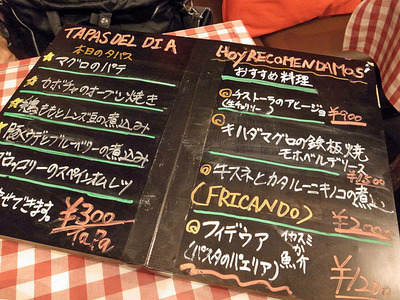 TAPAS DEL DIA
本日のタパス
マグロのパテ
カボチャのオーブン焼き
鶏ももとレンズ豆の煮込み
豚ウデとブルーベリーの煮込み
ブロッコリーのスペインオムレツ
できます。
¥300
TaPa
HOY RECOMENDAMOS
おすすめ料理
チストーラのアヒージョ
(生チョリソー)
¥900
キハダマグロの鉄板焼
モホベルデソース
牛スネとカタルーニャキノコの煮込
(FRICANDO)
フィデウア
(パスタのパエリア)
魚介